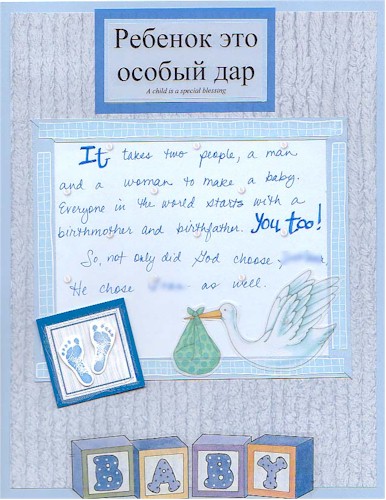 Ребенок это
особый дар
A child is a special blessing
It takes two people, a man
and a woman to make a baby.
Everyone in the world starts with a
birthmother and birthfather. You too!
So, not only did God choose
He chose as well.
BABY